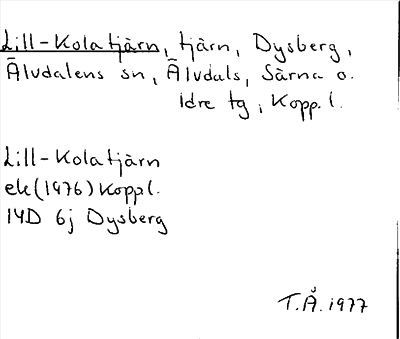 Lill-Kolatjärn, tjärn, Dysberg,
Älvdalens sn, Älvdals, Särna o.
Idre tg, Kopp. l.
Lill-Kolatjärn
ek (1976) Koppl.
14D 6j Dysberg
T.Å. 1977